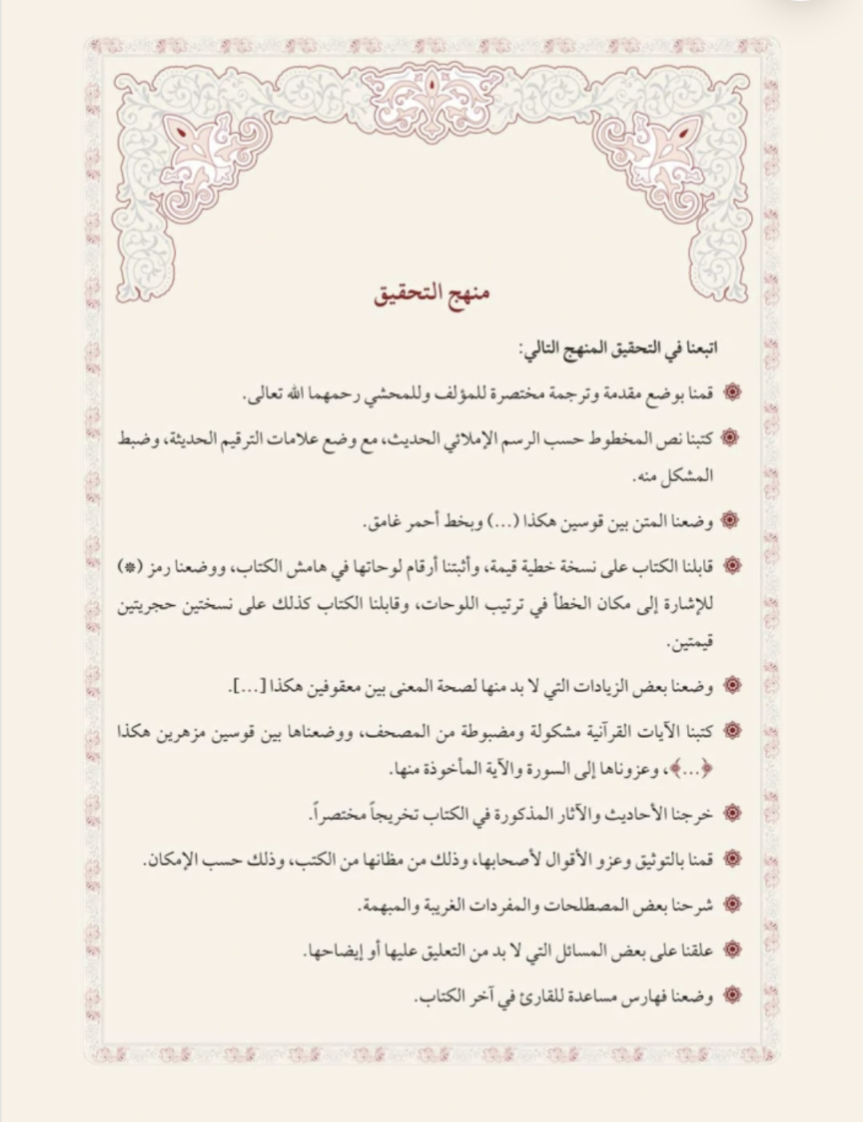 منهج التحقيق
اتبعنا في التحقيق المنهج التالي:
قمنا بوضع مقدمة وترجمة مختصرة للمؤلف وللمحشي رحمهما الله تعالى.
كتبنا نص المخطوط حسب الرسم الإملائي الحديث، مع وضع علامات الترقيم الحديثة، وضبط
المشكل منه.
وضعنا المتن بين قوسين هكذا (...) وبخط أحمر غامق.
قابلنا الكتاب على نسخة خطية قيمة، وأثبتنا أرقام لوحاتها في هامش الكتاب، ووضعنا رمز (❋)
للإشارة إلى مكان الخطأ في ترتيب اللوحات، وقابلنا الكتاب كذلك على نسختين حجريتين
قيمتين.
وضعنا بعض الزيادات التي لا بد منها لصحة المعنى بين معقوفين هكذا [...].
كتبنا الآيات القرآنية مشكولة ومضبوطة من المصحف، ووضعناها بين قوسين مزهرين هكذا
﴿...﴾، وعزوناها إلى السورة والآية المأخوذة منها.
خرجنا الأحاديث والآثار المذكورة في الكتاب تخريجاً مختصراً.
قمنا بالتوثيق وعزو الأقوال لأصحابها، وذلك من مظانها من الكتب، وذلك حسب الإمكان.
شرحنا بعض المصطلحات والمفردات الغريبة والمبهمة.
علقنا على بعض المسائل التي لا بد من التعليق عليها أو إيضاحها.
وضعنا فهارس مساعدة للقارئ في آخر الكتاب.